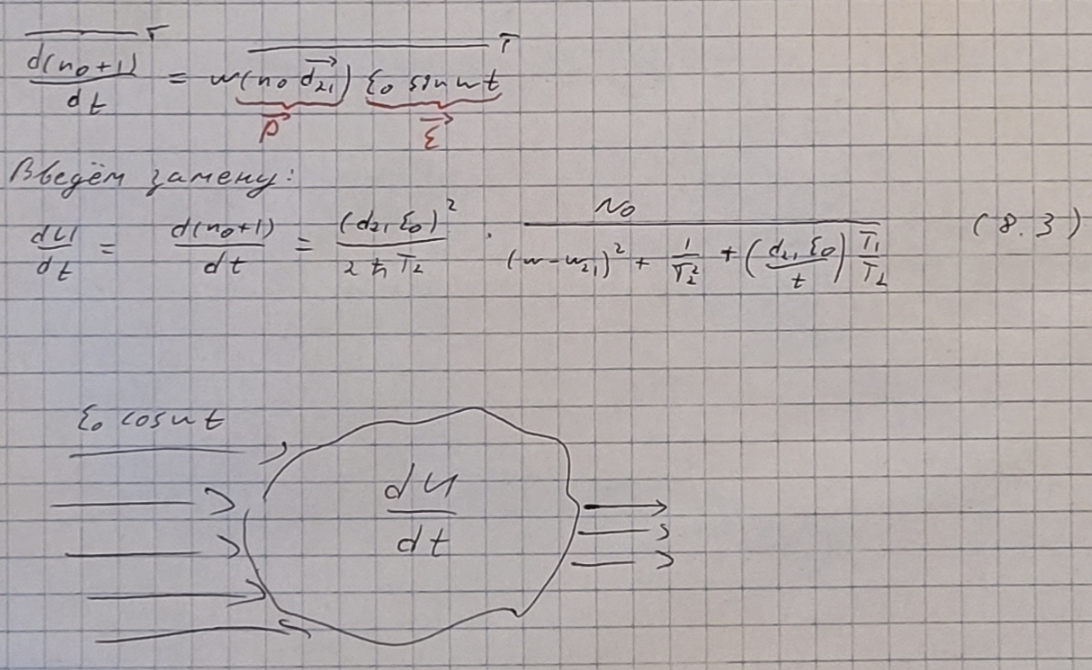 d(n₀+1)/dt ᵀ = w(n₀ d₂₁) ξ₀ sin wt ᵀ
p ξ
Введём замену:
dU/dt = d(n₀+1)/dt = (d₂₁ ξ₀)²/(2ħT₂) · N₀/((w-w₂₁)² + 1/T₂² + (d₂₁ ξ₀/t) T₁/T₂) (8.3)
ξ₀ cos wt
dU/dt